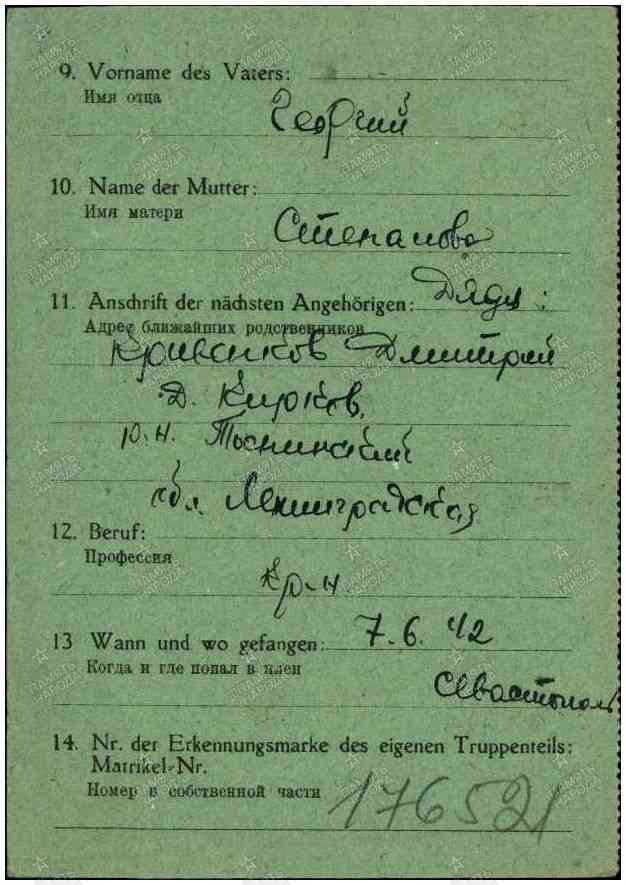 9. Vorname des Vaters:
Имя отца
Георгий
10. Name der Mutter:
Имя матери
Степанова
11. Anschrift der nächsten Angehörigen: Дядя:
Адрес ближайших родственников
Дмитрий
Д.
р.н. Тоснинский
обл. Ленинградская
12. Beruf:
Профессия
кр-н.
13 Wann und wo gefangen: 7.6.42
Когда и где попал в плен
Севастополь
14. Nr. der Erkennungsmarke des eigenen Truppenteils:
Matrikel-Nr.
Номер в собственной части
176521
ПАМЯТЬ НАРОДА